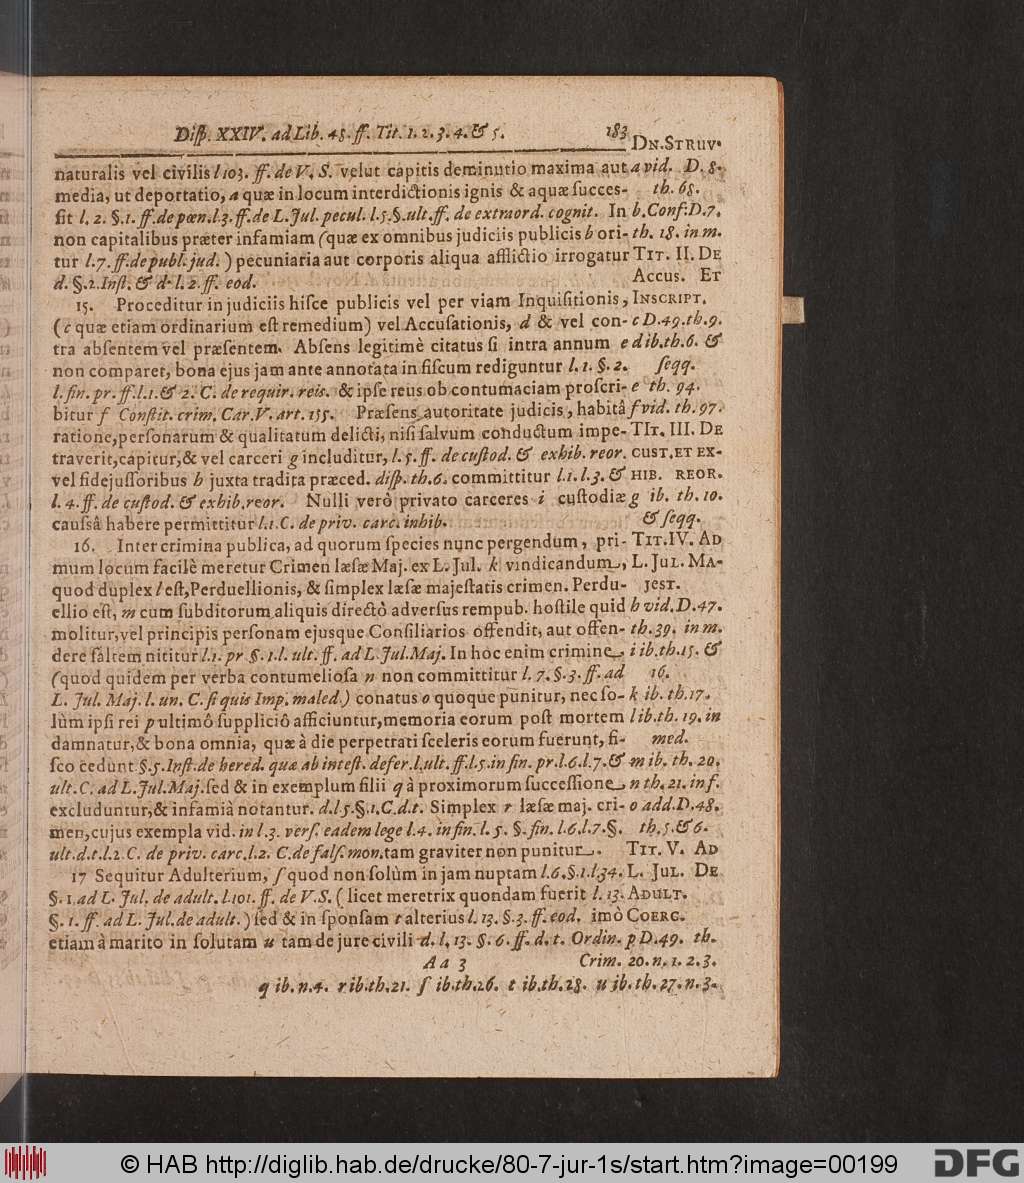 Diſp. XXIV. ad Lib. 48. ff. Tit. 1. 2. 3. 4. & 5. 183
naturalis vel civilis l 103. ff. de V. S. velut capitis deminutio maxima aut
media, ut deportatio, a quæ in locum interdictionis ignis & aquæ ſucceſ-
ſit l. 2. §. 1. ff. de pœn. l. 3. ff. de L. Jul. pecul. l. 5. §. ult. ff. de extraord. cognit. In
non capitalibus præter infamiam (quæ ex omnibus judiciis publicis b ori-
tur l. 7. ff. de publ. jud.) pecuniaria aut corporis aliqua afflictio irrogatur
d. §. 2. Inſt. & d. l. 2. ff. eod.
15. Proceditur in judiciis hiſce publicis vel per viam Inquiſitionis,
(c quæ etiam ordinarium eſt remedium) vel Accuſationis, d & vel con-
tra abſentem vel præſentem. Abſens legitimè citatus ſi intra annum e
non comparet, bona ejus jam ante annotata in fiſcum rediguntur l. 1. §. 2.
l. fin. pr. ff. l. 1. & 2. C. de requir. reis. & ipſe reus ob contumaciam proſcri-
bitur f Conſtit. crim. Car. V. art. 155. Præſens autoritate judicis, habitâ
ratione, perſonarum & qualitatum delicti, niſi ſalvum conductum impe-
traverit, capitur, & vel carceri g includitur, l. 5. ff. de cuſtod. & exhib. reor.
vel fidejuſſoribus h juxta tradita præced. diſp. th. 6. committitur l. 1. l. 3. &
l. 4. ff. de cuſtod. & exhib. reor. Nulli verò privato carceres i cuſtodiæ
cauſsâ habere permittitur l. 1. C. de priv. carc. inhib.
16. Inter crimina publica, ad quorum ſpecies nunc pergendum, pri-
mum locum facilè meretur Crimen læſæ Maj. ex L. Jul. k vindicandum,
quod duplex l eſt, Perduellionis, & ſimplex læſæ majeſtatis crimen. Perdu-
ellio eſt, m cum ſubditorum aliquis directò adverſus rempub. hoſtile quid
molitur, vel principis perſonam ejusque Conſiliarios offendit, aut offen-
dere ſaltem nititur l. 1. pr §. 1. l. ult. ff. ad L. Jul. Maj. In hoc enim crimine
(quod quidem per verba contumelioſa n non committitur l. 7. §. 3. ff. ad
L. Jul. Maj. l. un. C. ſi quis Imp. maled.) conatus o quoque punitur, nec ſo-
lùm ipſi rei p ultimô ſuppliciô afficiuntur, memoria eorum poſt mortem
damnatur, & bona omnia, quæ à die perpetrati ſceleris eorum fuerunt, fi-
ſco cedunt §. 5. Inſt. de hered. quæ ab inteſt. defer. l. ult. ff. l. 5. in fin. pr. l. 6. l. 7. &
ult. C. ad L. Jul. Maj. ſed & in exemplum filii q à proximorum ſucceſſione
excluduntur, & infamiâ notantur. d. l. 5. §. 1. C. d. t. Simplex r læſæ maj. cri-
men, cujus exempla vid. in l. 3. verſ. eadem lege l. 4. in fin. l. 5. §. fin. l. 6. l. 7. §.
ult. d. t. l. 2. C. de priv. carc. l. 2. C. de falſ. mon. tam graviter non punitur.
17 Sequitur Adulterium, ſ quod non ſolùm in jam nuptam l. 6. §. 1. l. 34.
§. 1. ad L. Jul. de adult. l. 101. ff. de V. S. (licet meretrix quondam fuerit l. 13.
§. 1. ff. ad L. Jul. de adult.) ſed & in ſponſam t alterius l. 13. §. 3. ff. eod. imò
etiam à marito in ſolutam u tam de jure civili d. l. 13. §. 6. ff. d. t. Ordin.
A a 3 Crim. 20. n. 1. 2. 3.
DN. STRUV.
a vid. D. 8.
th. 68.
b. Conf. D. 7.
th. 18. in m.
TIT. II. DE
ACCUS. ET
INSCRIPT.
c D. 49. th. 9.
d ib. th. 6. &
ſeqq.
e th. 94.
f vid. th. 97.
TIT. III. DE
CUST. ET EX-
HIB. REOR.
g ib. th. 10.
& ſeqq.
TIT. IV. AD
L. JUL. MA-
JEST.
h vid. D. 47.
th. 39. in m.
i ib. th. 15. &
16.
k ib. th. 17.
l ib. th. 19. in
med.
m ib. th. 20.
n th. 21. inf.
o add. D. 48.
th. 5. & 6.
TIT. V. AD
L. JUL. DE
ADULT.
COERC.
p D. 49. th.
q ib. n. 4. r ib. th. 21. ſ ib. th. 26. t ib. th. 28. u ib. th. 27. n. 3.
© HAB http://diglib.hab.de/drucke/80-7-jur-1s/start.htm?image=00199
DFG